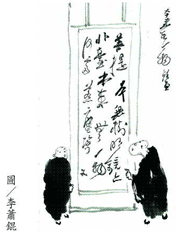 本來無一物
菩提本無樹明鏡亦
非臺本來無一物
何處惹塵埃
圖／李蕭錕